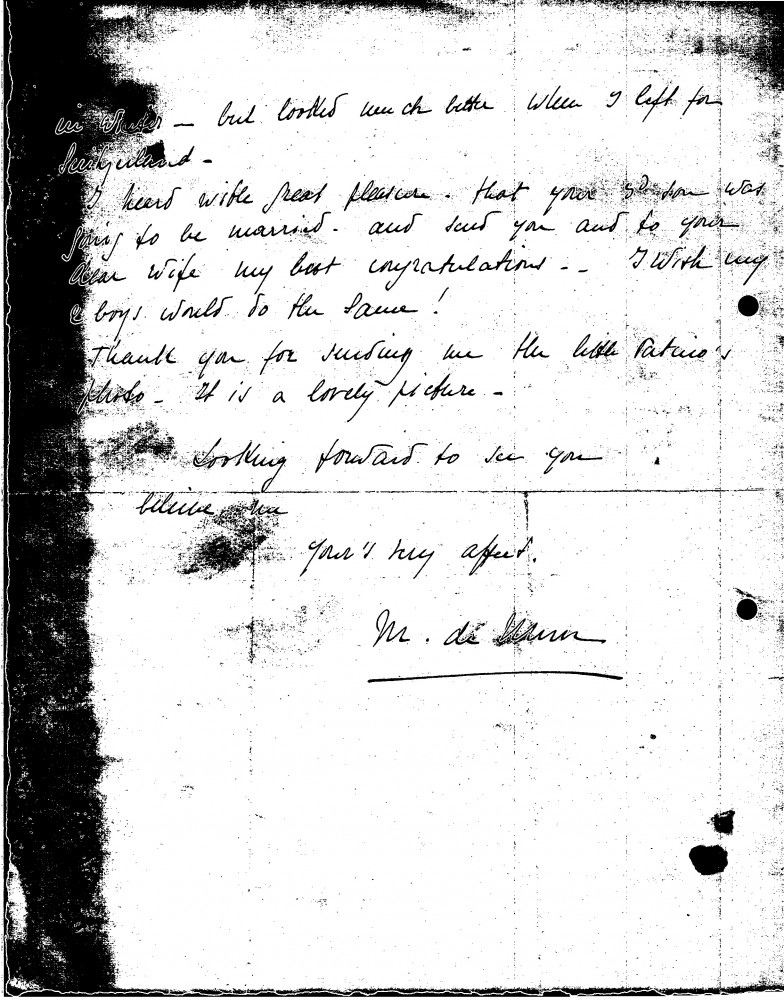 in winter – but looked much better when I left for
Switzerland –
I heard with great pleasure. that your 3d son was
going to be married. and send you and to your
dear wife my best congratulations – – I wish my
boys would do the same !
Thank you for sending me the little Patino's
photo – It is a lovely picture –
Looking forward to see you
believe me
your's very affect.
M. de